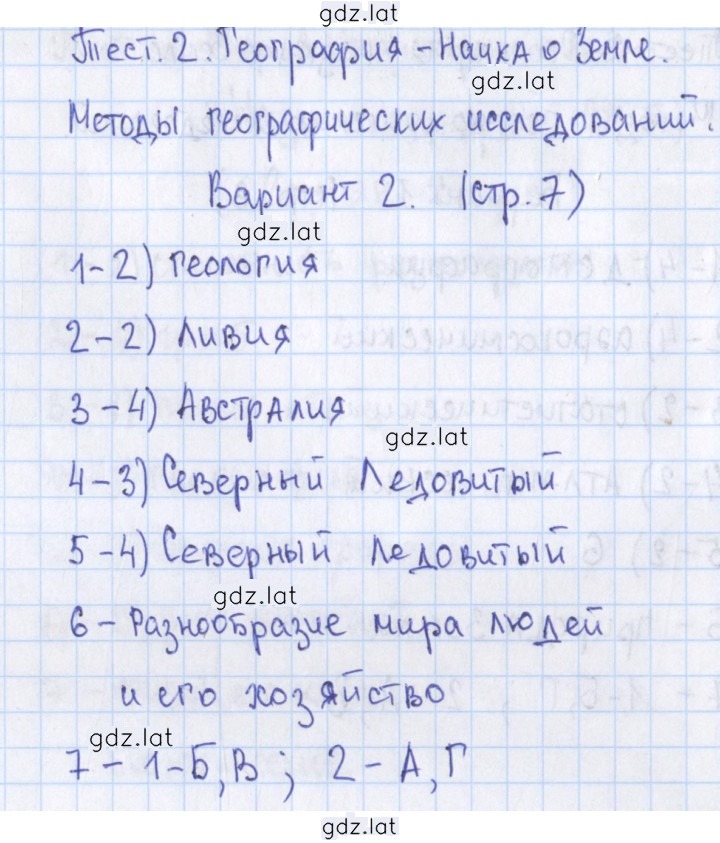 gdz.lat
Тест. 2. География - Наука о Земле.
gdz.lat
Методы географических исследований.
Вариант 2. (стр. 7)
gdz.lat
1-2) геология
2-2) Ливия
3-4) Австралия
gdz.lat
4-3) Северный Ледовитый
5-4) Северный Ледовитый
gdz.lat
6 - Разнообразие мира людей
и его хозяйство
gdz.lat
7 - 1 - Б, В ; 2 - А, Г
gdz.lat